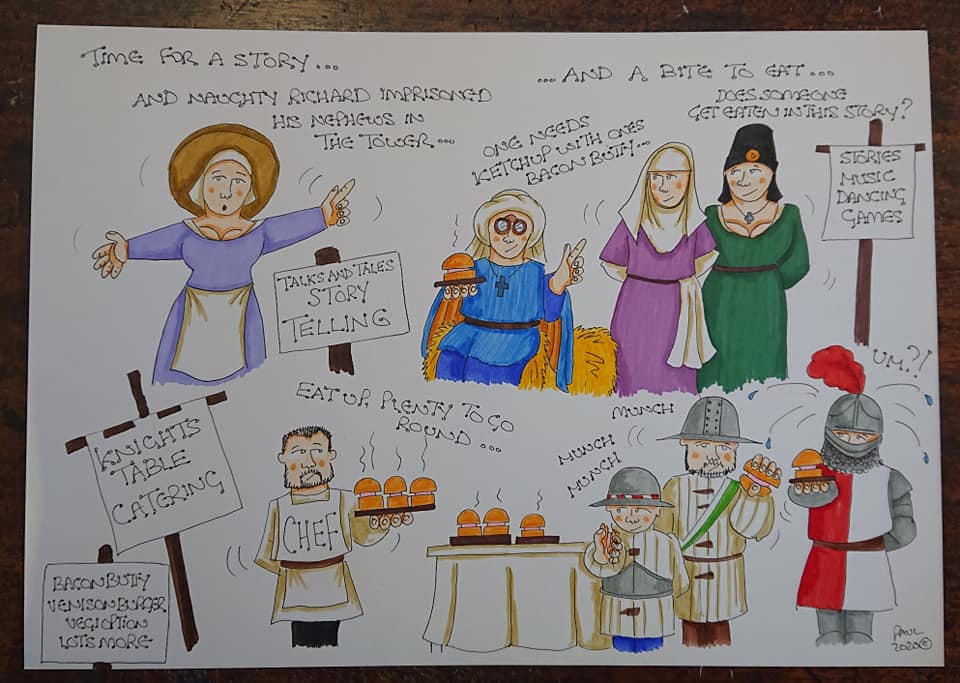 TIME FOR A STORY...
...AND A BITE TO EAT...
AND NAUGHTY RICHARD IMPRISONED
HIS NEPHEWS IN
THE TOWER...
ONE NEEDS
KETCHUP WITH ONES
BACON BUTTY...
DOES SOMEONE
GET EATEN IN THIS STORY?
STORIES
MUSIC
DANCING
GAMES
TALKS AND TALES
STORY
TELLING
KNIGHTS
TABLE
CATERING
BACON BUTTY
VENISON BURGER
VEGI OPTION
LOTS MORE
EAT UP, PLENTY TO GO
ROUND...
CHEF
MUNCH
MUNCH
MUNCH
UM?!
PAUL
2020©